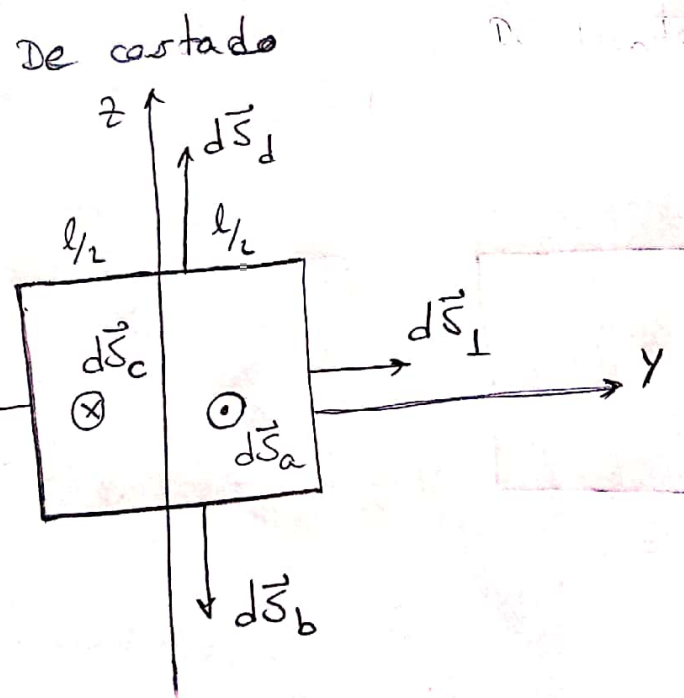 De costado
z
dS⃗_d
l/2 l/2
dS⃗_c
dS⃗_⊥
y
dS⃗_a
dS⃗_b